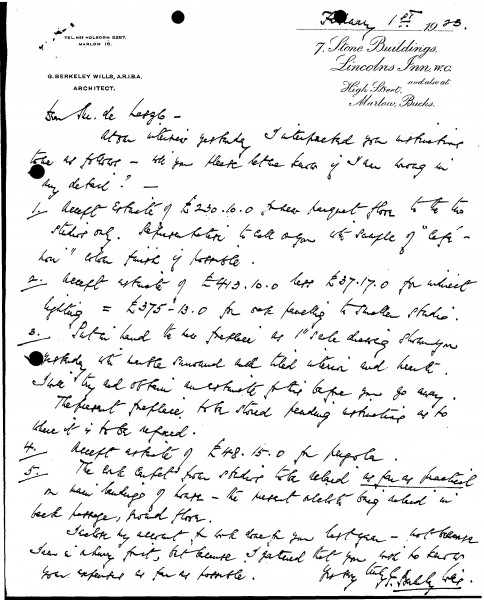 February 1st 1923.
TEL. Nos HOLBORN 5257.
MARLOW 16.
7, Stone Buildings,
Lincolns Inn, W.C.
and also at
High Street,
Marlow, Bucks.
G. BERKELEY WILLS, A.R.I.B.A.
ARCHITECT.
Dear Mr. de Laszlo –
At our interview yesterday I interpreted your instructions
to be as follows – will you please let me know if I am wrong in
any detail? –
1. Accept estimate of £230.10.0 for new parquet floor to the two
studios only. Representative to call on you with sample of "Café-
noir" colour finish if possible.
2. Accept estimate of £413.10.0 less £37.17.0 for indirect
lighting = £375-13.0 for oak panelling to smaller studio.
3. Put in hand the new fireplace as 1" scale drawing shown you
yesterday with marble surround and tiled interior and hearth.
I will try and obtain an estimate for this before you go away.
The present fireplace to be stored pending instructions as to
where it is to be refixed.
4. Accept estimate of £48.15.0 for pergola.
5. The cork carpet from studios to be relaid as far as practical
on main landings of house – the present being relaid in
back passage, ground floor.
I enclose my account for work done for you last year – not because
I am in a hurry for it, but because I gathered that you wish to know
your expenses as far as possible. Yours very truly
G. Berkeley Wills